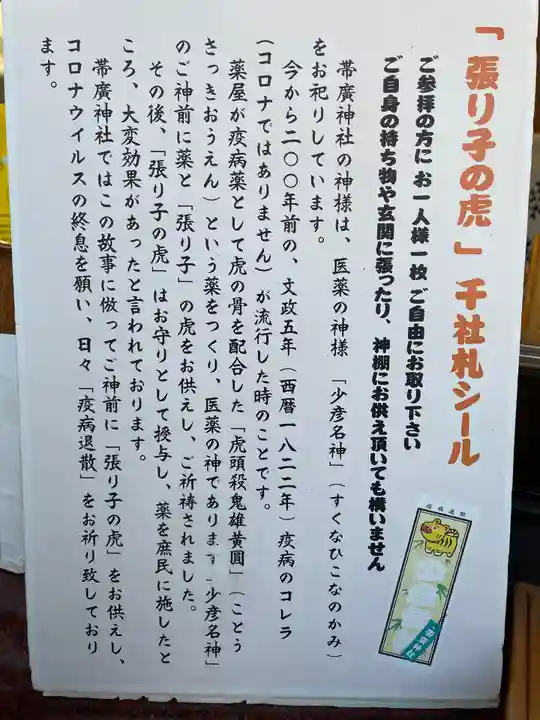 「張り子の虎」千社札シール
ご参拝の方に お一人様一枚 ご自由にお取り下さい
ご自身の持ち物や玄関に張ったり、神棚にお供え頂いても構いません
帯廣神社の神様は、医薬の神様 「少彦名神」(すくなひこなのかみ)
をお祀りしています。
今から二〇〇年前の、文政五年(西暦一八二二年)疫病のコレラ
(コロナではありません)が流行した時のことです。
薬屋が疫病薬として虎の骨を配合した「虎頭殺鬼雄黄圓」(ことう
さっきおうえん)という薬をつくり、医薬の神であります「少彦名神」
のご神前に薬と「張り子」の虎をお供えし、ご祈祷されました。
その後、「張り子の虎」はお守りとして授与し、薬を庶民に施したと
ころ、大変効果があったと言われております。
帯廣神社ではこの故事に倣ってご神前に「張り子の虎」をお供えし、
コロナウイルスの終息を願い、日々「疫病退散」をお祈り致しており
ます。
疫病退散
帯廣神社